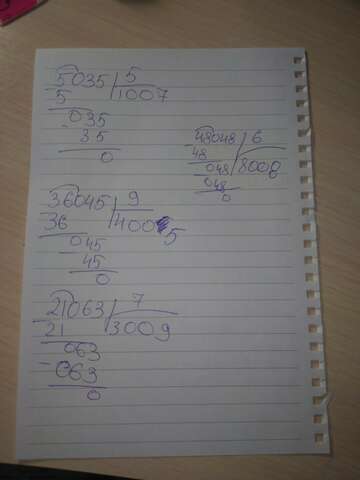 5035 | 5
5 | 1007
035
35
0
48048 | 6
48 | 8008
048
048
0
36045 | 9
36 | 4005
045
45
0
21063 | 7
21 | 3009
063
063
0